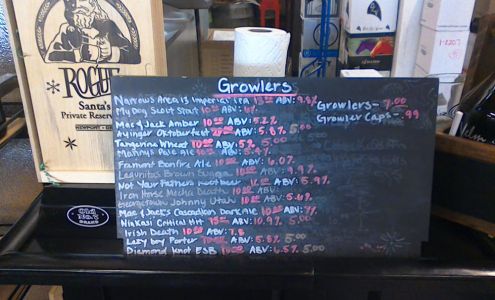 ROGUE
Santa's
Private Reserve
NEWPORT
Growlers
Narrows Area is Imperial IPA 13⁰⁰ ABV: 9.2%
My Dog Scout Stout 10⁰⁰ ABV:
Mac & Jack Amber 10⁰⁰ ABV: 5.2%
Ayinger Oktoberfest ABV: 5.8% 5.00
Tangerine Wheat 10⁰⁰ ABV: 5% 5.00
Manny's Pale Ale ABV: 5.4%
Fremont Bonfire Ale 10⁰⁰ ABV: 6.0%
Lagunitas Brown Sugga 10⁰⁰ ABV: 9.9%
Not Your Fathers Rootbeer ABV: 5.9%
Iron Horse Mocha Death ABV:
Georgetown Johnny Utah 10⁰⁰ ABV: 5.6%
Mac & Jack's Cascadian Dark Ale 10⁰⁰ ABV: 7%
Ninkasi Critical Hit 15⁰⁰ ABV: 10.9% 5.00
Irish Death 10⁰⁰ ABV: 7.8
Lazy boy Porter ABV: 5.8% 5.00
Diamond Knot ESB 10⁰⁰ ABV: 6.5% 5.00
Growlers- 7.00
Growler Caps- .99
Old No. 7
BRAND
1-2207